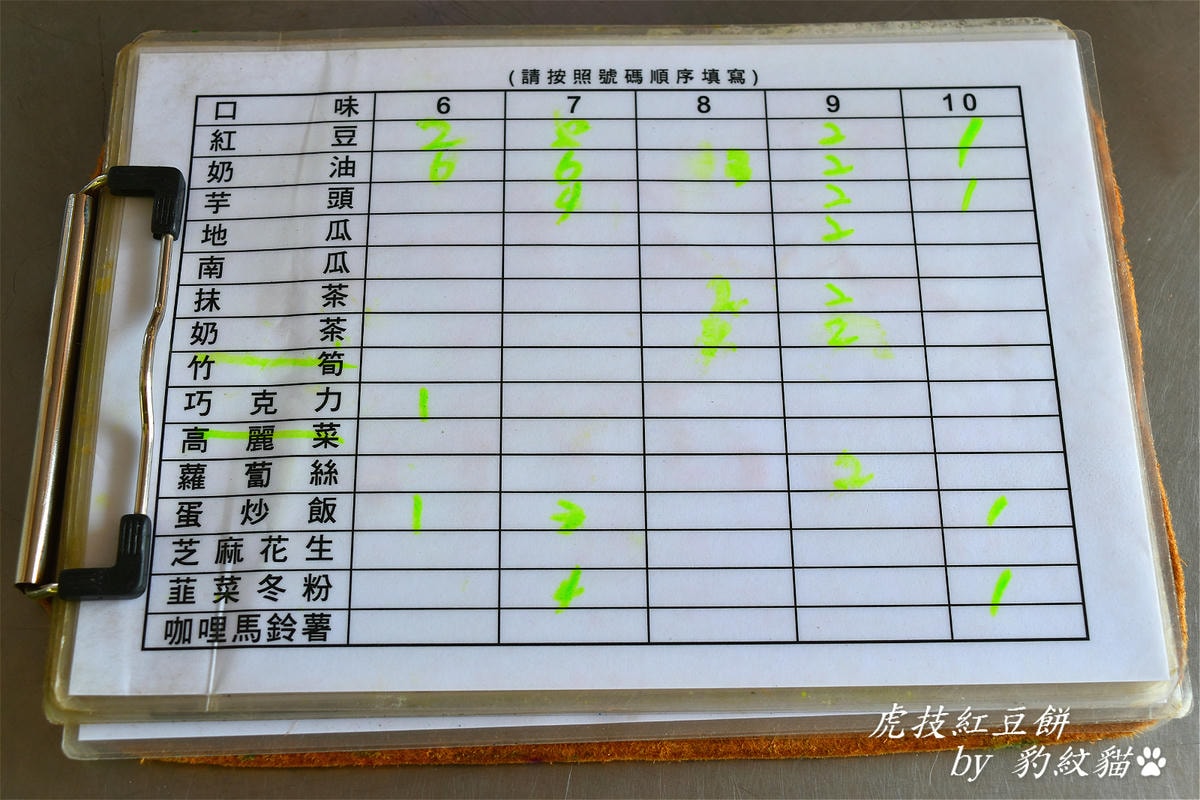 (請按照號碼順序填寫)
口味 6 7 8 9 10
紅豆 2 2 1
奶油 6 6 2
芋頭 2 1
地瓜 2
南瓜
抹茶 2
奶茶 2
竹筍
巧克力 1
高麗菜
蘿蔔絲 2
蛋炒飯 1 2 1
芝麻花生
韮菜冬粉 1
咖哩馬鈴薯
虎技紅豆餅
by 豹紋貓